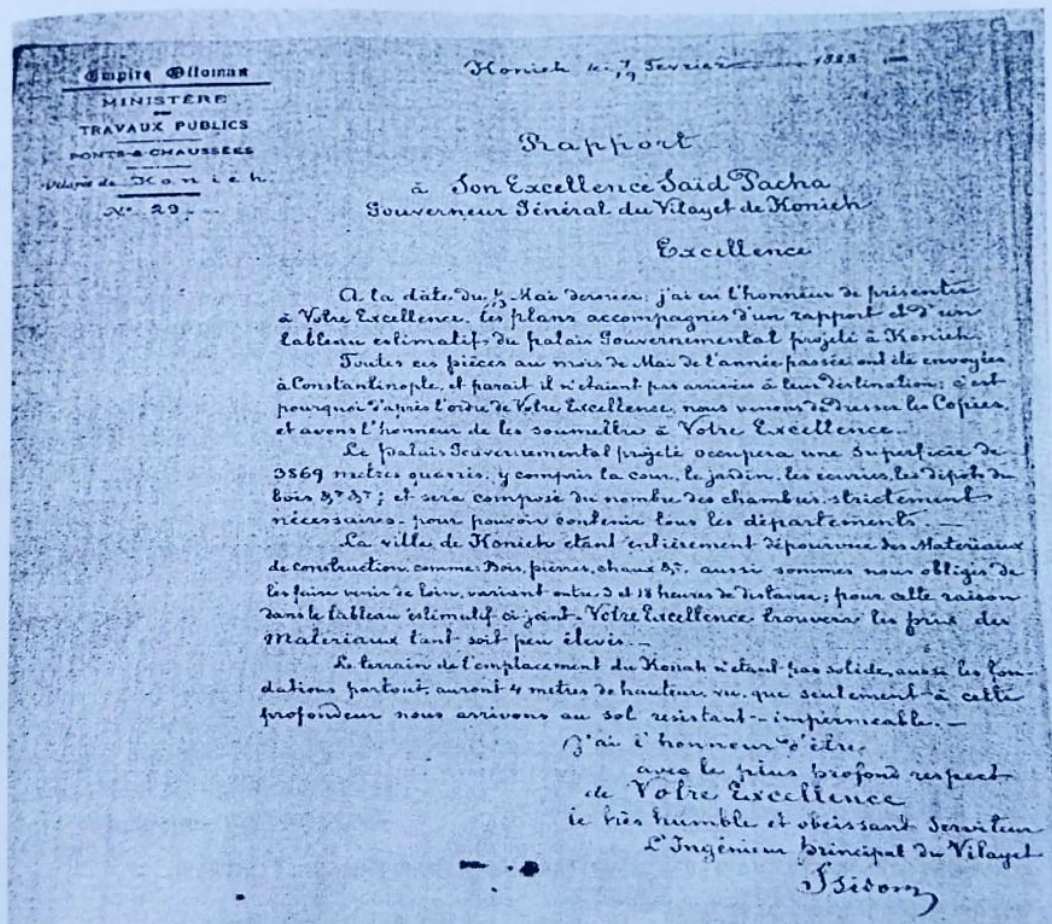 Empire Ottoman
MINISTÈRE
TRAVAUX PUBLICS
PONTS & CHAUSSÉES
Vilayet de Konieh
No 29
Konieh le 7/19 Fevrier 1883
Rapport
à Son Excellence Saïd Pacha
Gouverneur Général du Vilayet de Konieh
Excellence
A la date du Mai dernier; j'ai eu l'honneur de présenter
à Votre Excellence, les plans accompagnés d'un rapport et d'un
tableau estimatif, du palais Gouvernemental projeté à Konieh.
Toutes ces pièces au mois de Mai de l'année passée ont été envoyées
à Constantinople, et parait il n'étaient pas arrivées à leur destination; c'est
pourquoi d'après l'ordre de Votre Excellence, nous venons de dresser les Copies,
et avons l'honneur de les soumettre à Votre Excellence.
Le palais Gouvernemental projeté occupera une Superficie de
3869 metres quarrés, y compris la cour, le jardin, les écuries, les dépôts du
bois &a &a; et sera composé du nombre des chambres strictement
nécessaires pour pouvoir contenir tous les départements. —
La ville de Konieh etant entièrement dépourvue des Materiaux
de construction comme: Bois, pierres, chaux &a. aussi sommes nous obligés de
les faire venir de loin, variant entre 3 et 18 heures de distance; pour cette raison
dans le tableau estimatif ci joint, Votre Excellence trouvera les prix des
Materiaux tant soit peu élevés. —
Le terrain de l'emplacement du Konak n'étant pas solide, aussi les fon-
dations partout, auront 4 metres de hauteur, vu que seulement à cette
profondeur nous arrivons au sol resistant - impermeable. —
J'ai l'honneur d'être
avec le plus profond respect
de Votre Excellence
le très humble et obeissant Serviteur
L'Ingénieur principal du Vilayet